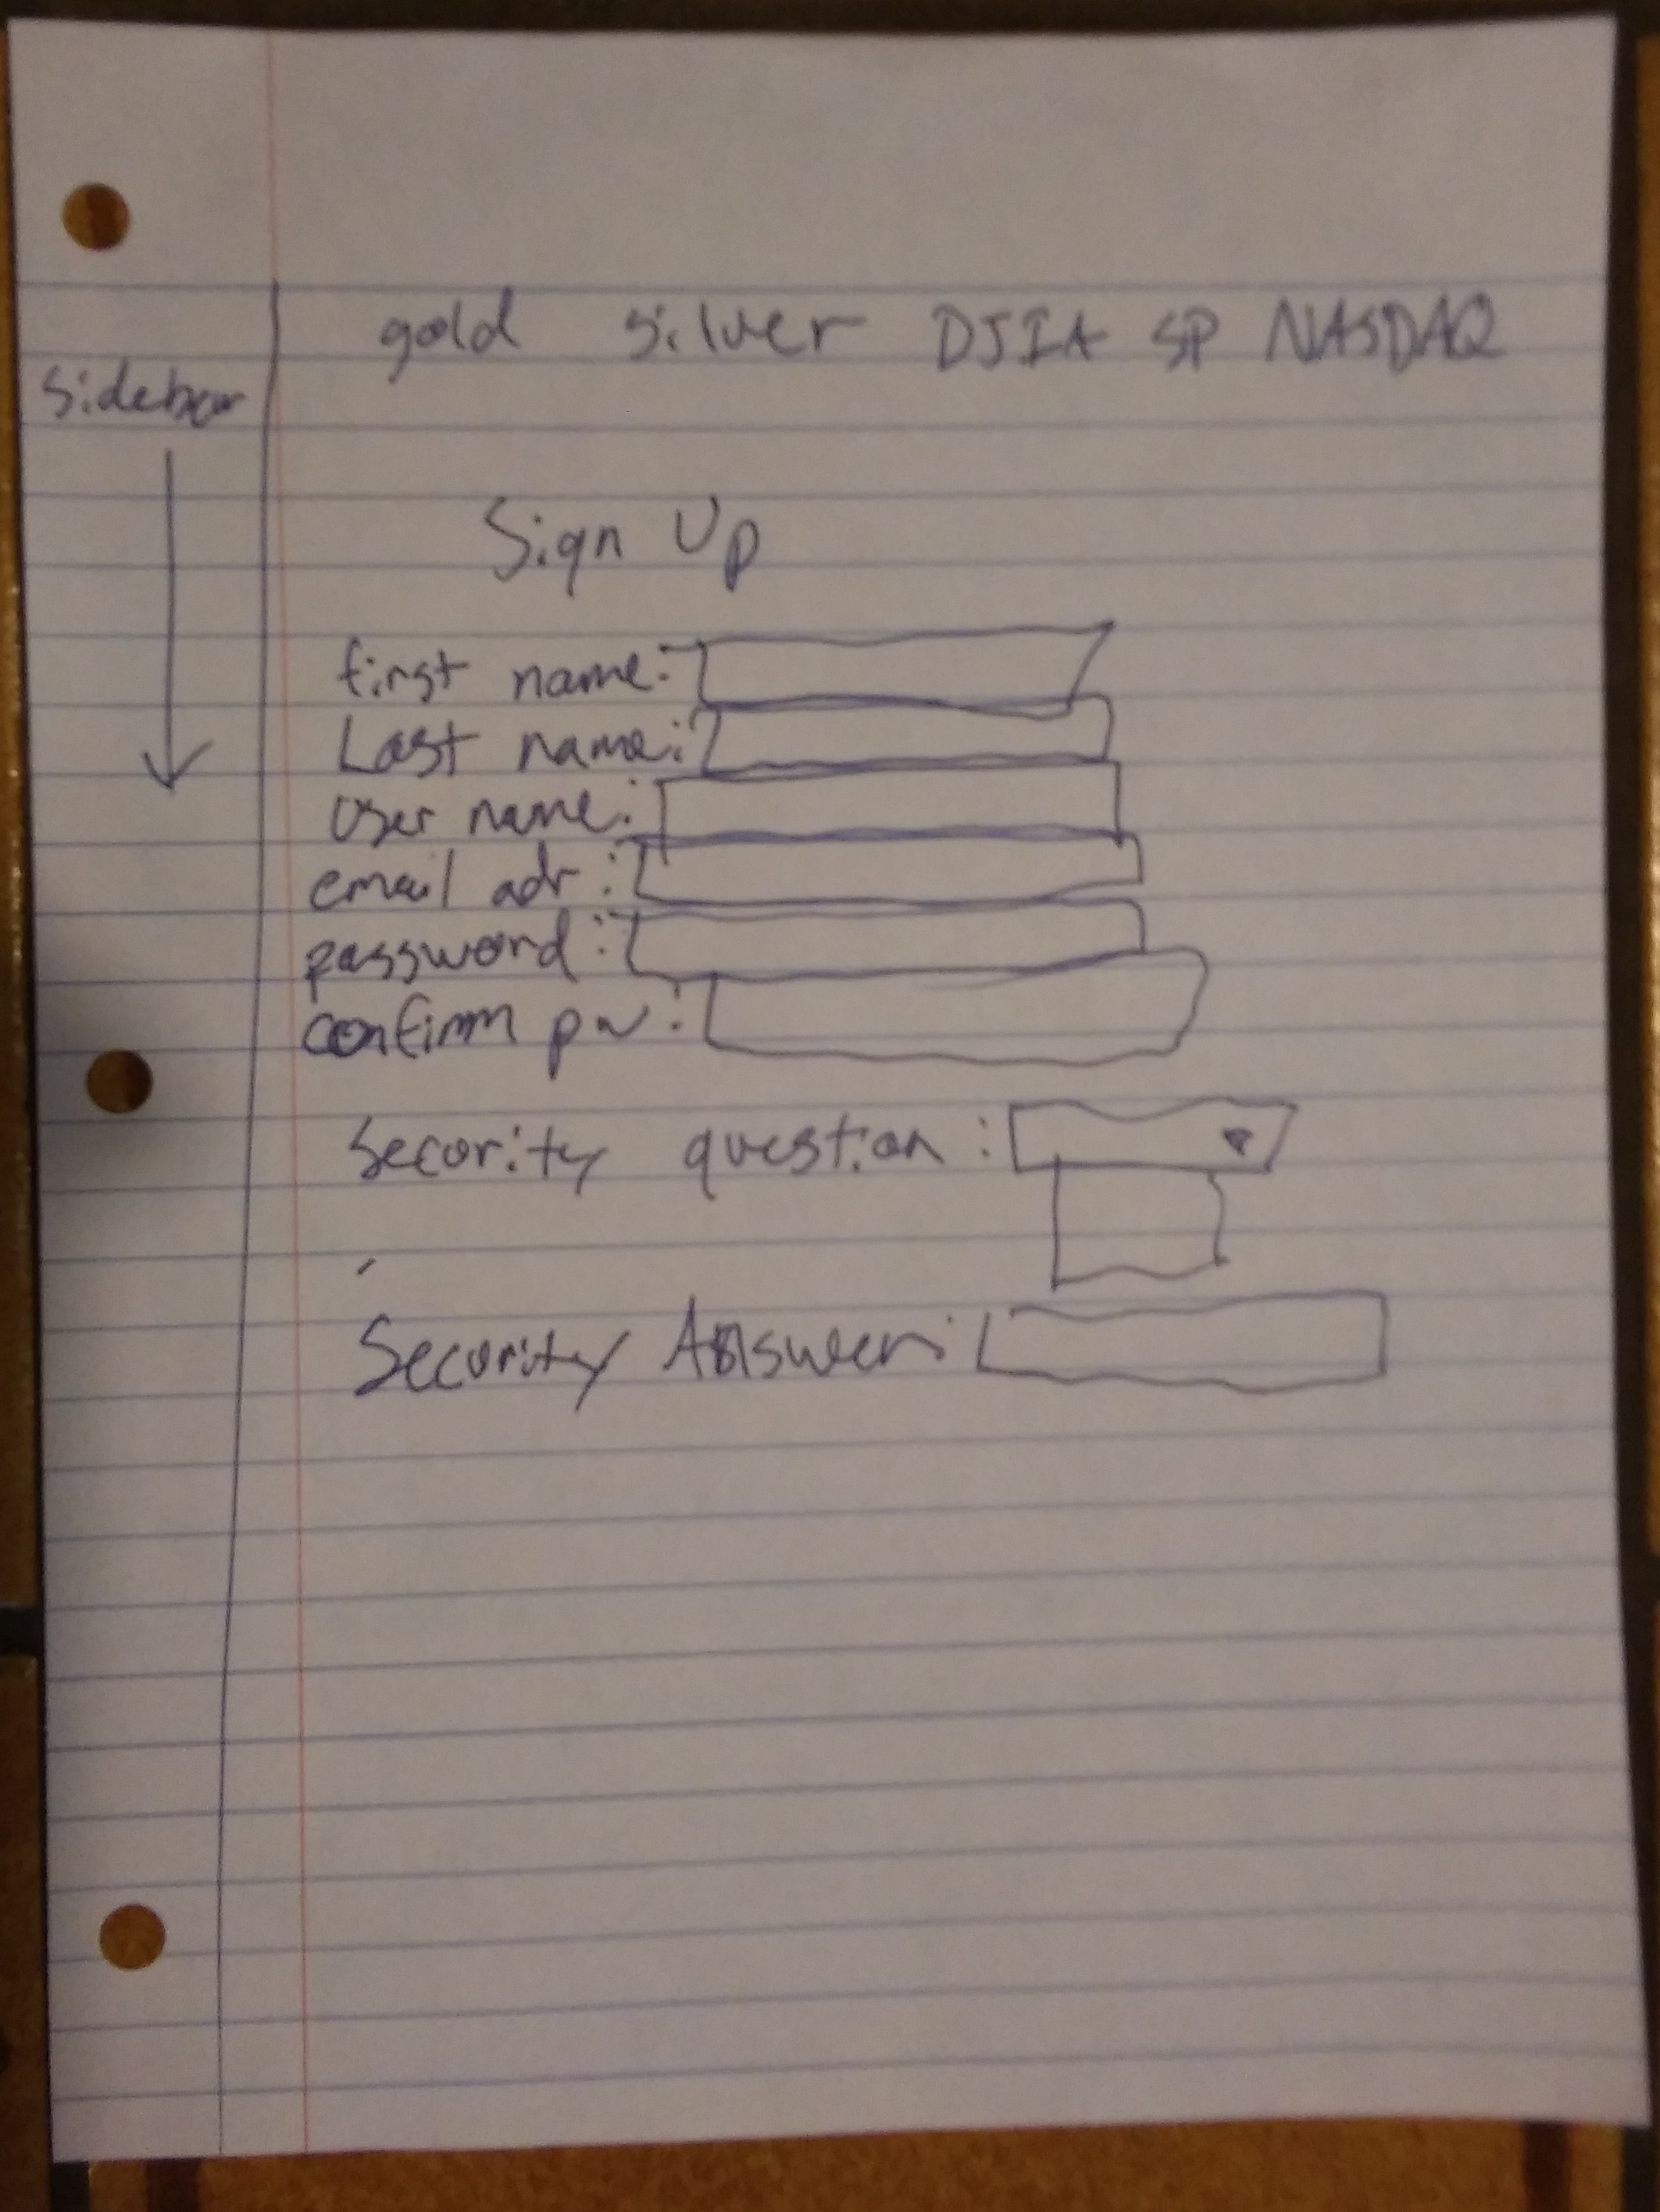 gold silver DJIA SP NASDAQ
sidebar
Sign Up
first name:
Last name:
User name:
email adr:
password:
confirm pw:
Security question:
Security Answer: